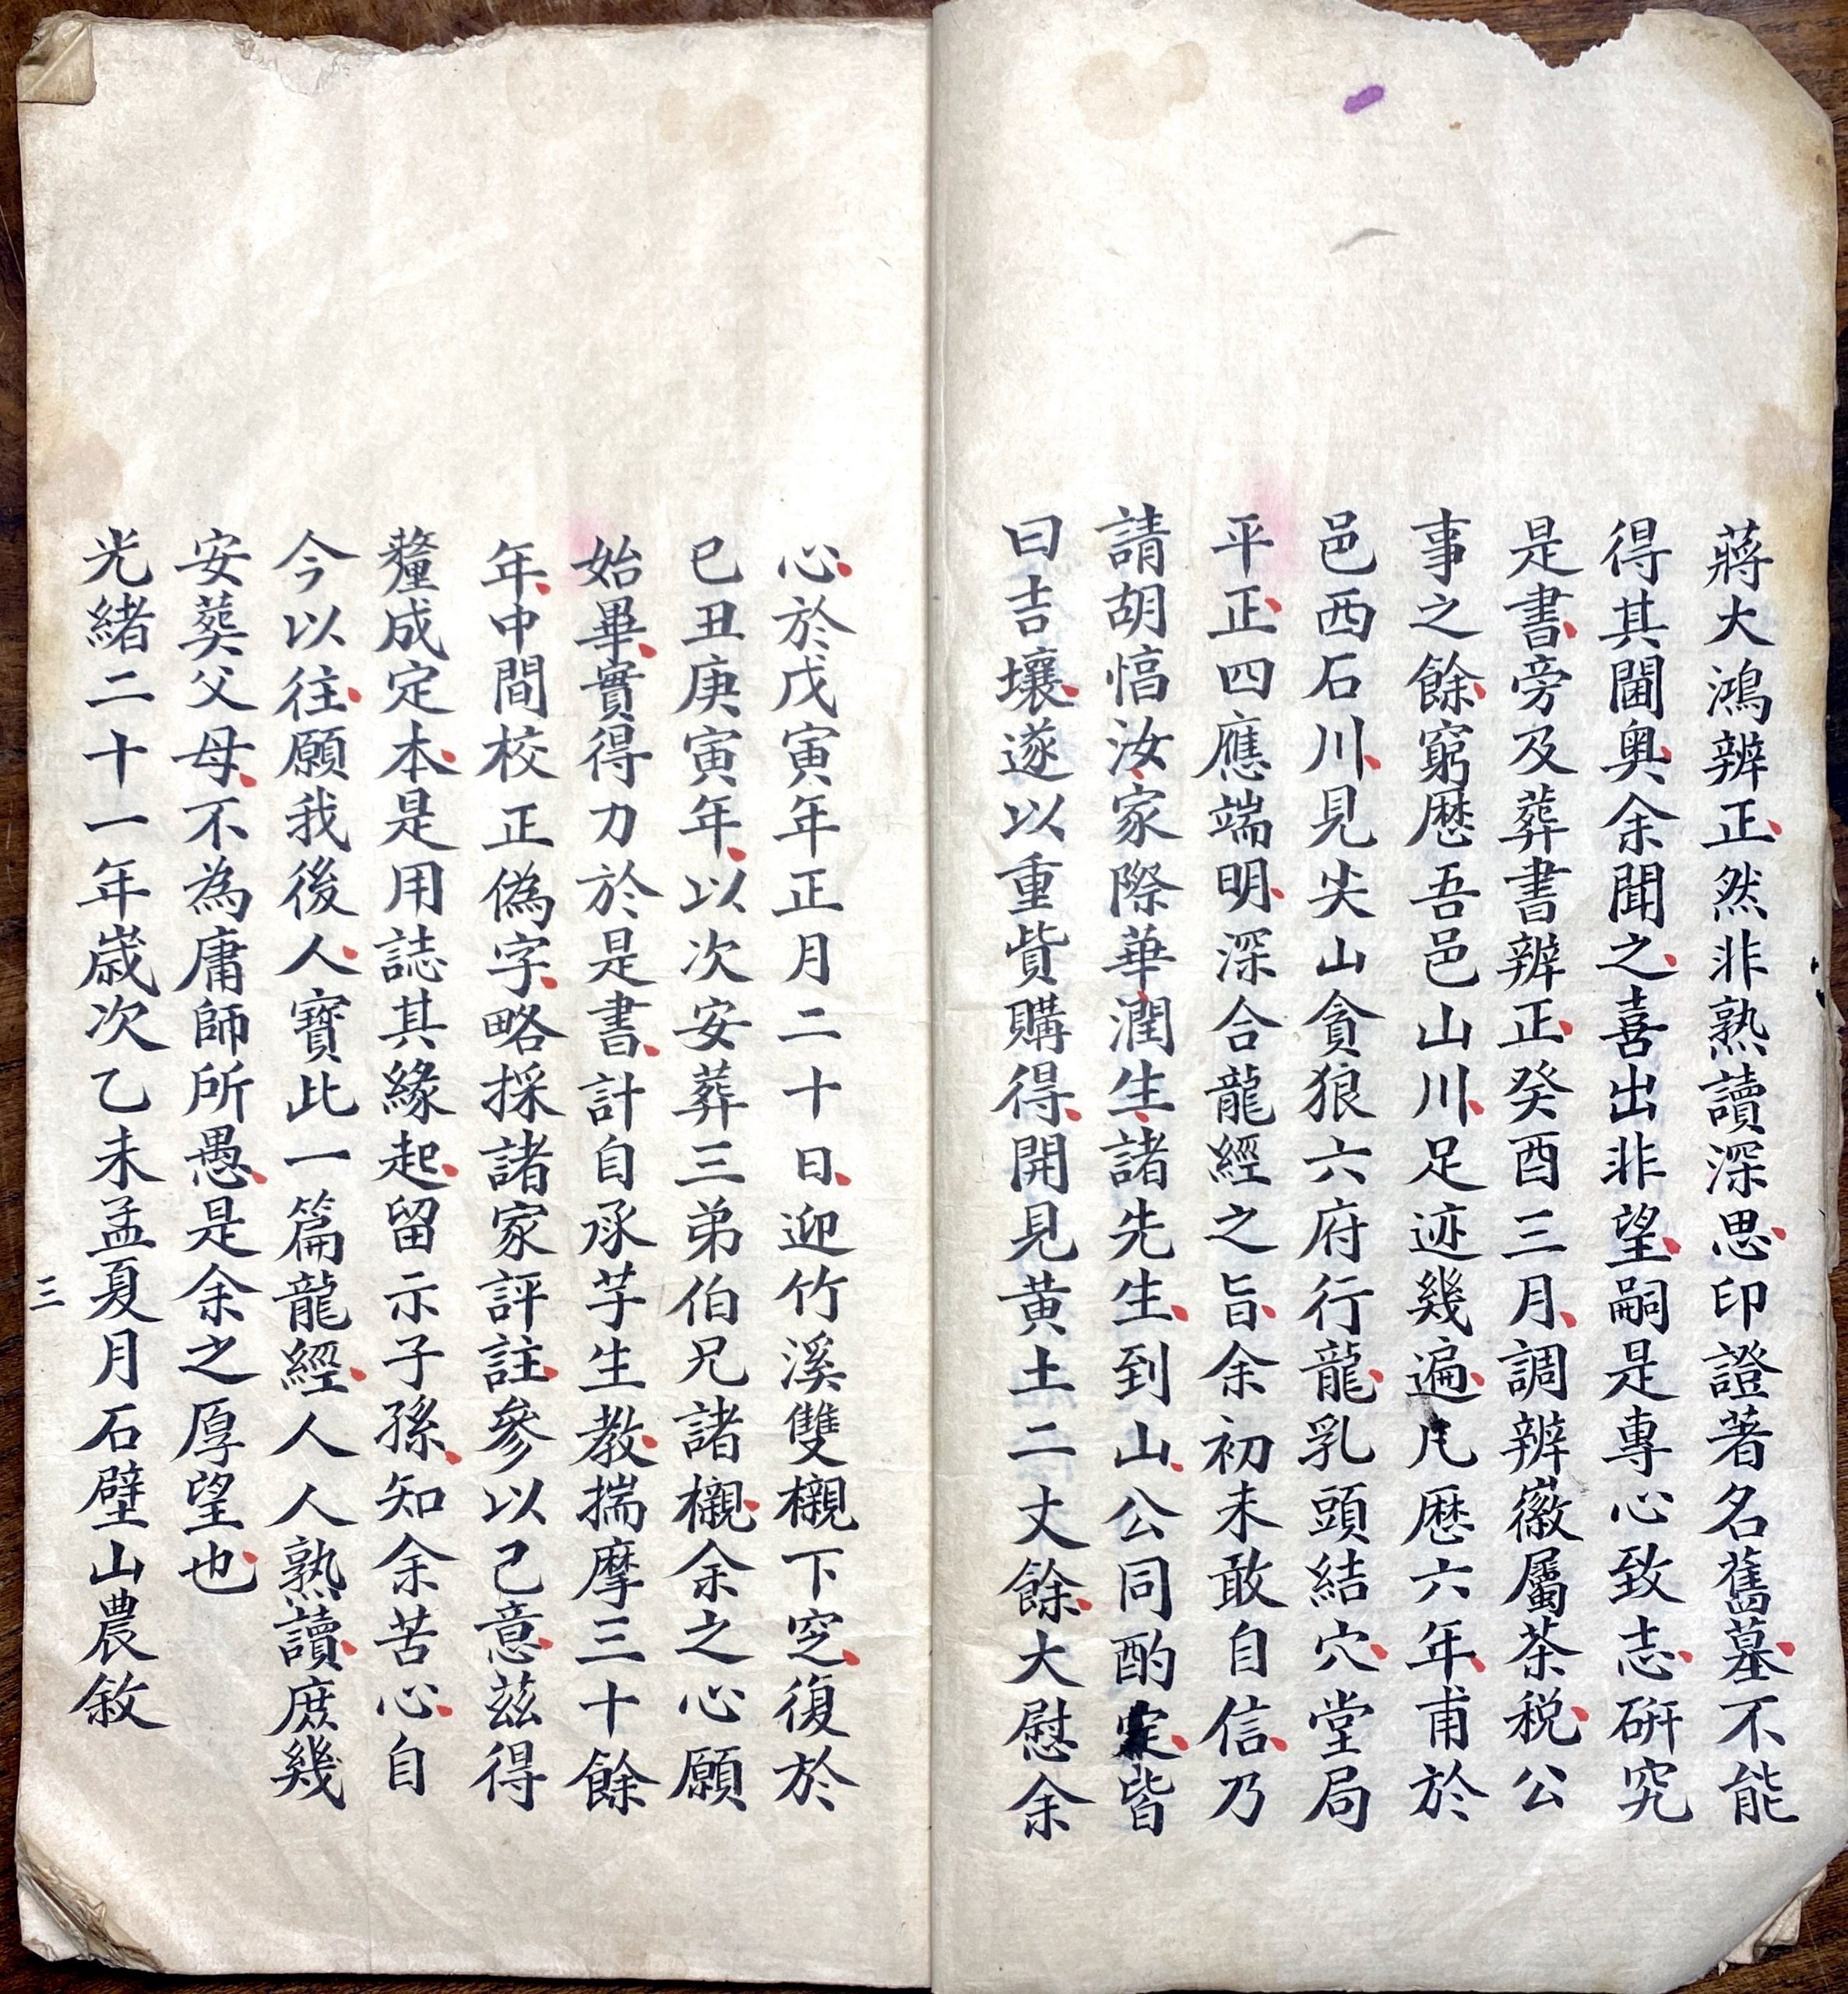 蔣大鴻辨正然非熟讀深思印證著名舊墓不能
得其閫奧余聞之喜出非望嗣是專心致志研究
是書旁及葬書辨正癸酉三月調辨徽屬茶税公
事之餘窮歷吾邑山川足迹幾遍凡歷六年甫於
邑西石川見尖山貪狼六府行龍乳頭結穴堂局
平正四應端明深合龍經之旨余初未敢自信乃
請胡愊汝家際華潤生諸先生到山公同酌定皆
曰吉壤遂以重貲購得開見黃土二丈餘大慰余
心於戊寅年正月二十日迎竹溪雙櫬下窆復於
已丑庚寅年以次安葬三弟伯兄諸櫬余之心願
始畢實得力於是書計自承芋生教揣摩三十餘
年中間校正偽字略採諸家評註參以己意茲得
釐成定本是用誌其緣起留示子孫知余苦心自
今以往願我後人寶此一篇龍經人人熟讀庶幾
安葬父母不為庸師所愚是余之厚望也
光緒二十一年歲次乙未孟夏月石壁山農敘
三